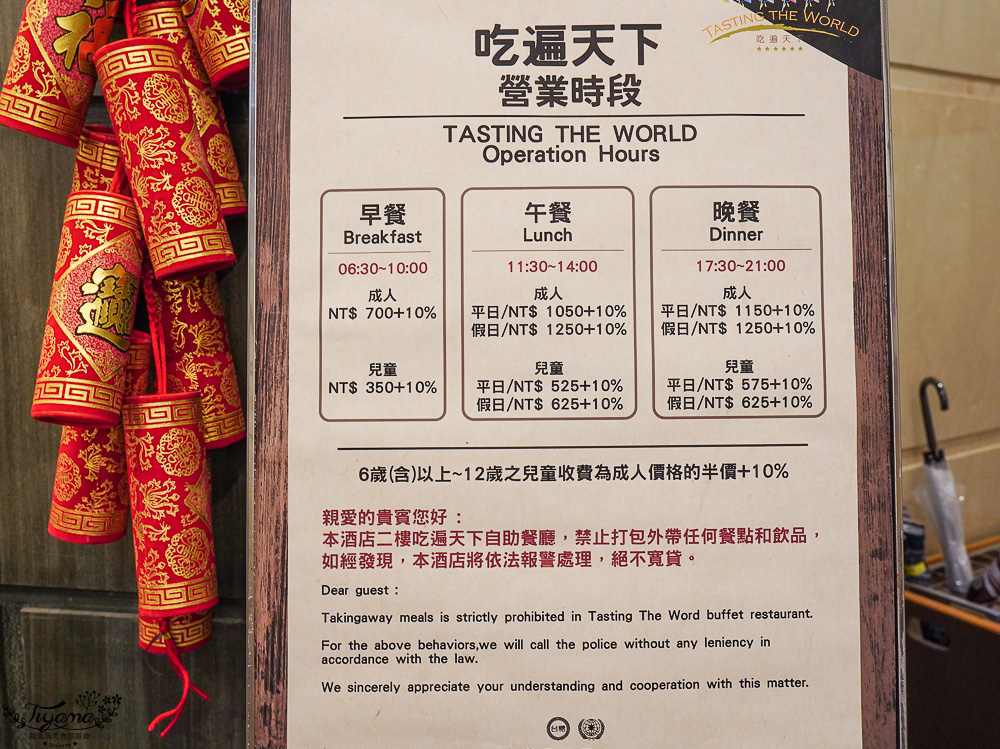 TASTING THE WORLD
吃遍天下
吃遍天下
營業時段
TASTING THE WORLD
Operation Hours
早餐
Breakfast
06:30~10:00
成人
NT$ 700+10%
兒童
NT$ 350+10%
午餐
Lunch
11:30~14:00
成人
平日/NT$ 1050+10%
假日/NT$ 1250+10%
兒童
平日/NT$ 525+10%
假日/NT$ 625+10%
晚餐
Dinner
17:30~21:00
成人
平日/NT$ 1150+10%
假日/NT$ 1250+10%
兒童
平日/NT$ 575+10%
假日/NT$ 625+10%
6歲(含)以上~12歲之兒童收費為成人價格的半價+10%
親愛的貴賓您好：
本酒店二樓吃遍天下自助餐廳，禁止打包外帶任何餐點和飲品，
如經發現，本酒店將依法報警處理，絕不寬貸。
Dear guest :
Takingaway meals is strictly prohibited in Tasting The Word buffet restaurant.
For the above behaviors,we will call the police without any leniency in
accordance with the law.
We sincerely appreciate your understanding and cooperation with this matter.
Tiyama